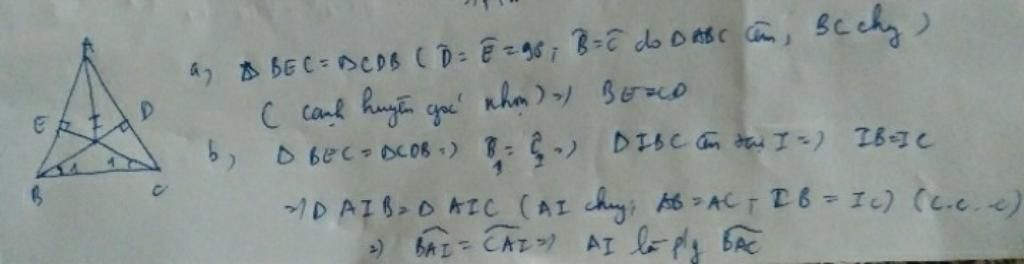 A
E
D
I
B
C
1
1
a, Δ BEC = ΔCDB ( D̂ = Ê = 90°; B̂ = Ĉ do ΔABC cân, BC chung )
( cạnh huyền góc nhọn ) => BE=CD
b, Δ BEC = ΔCDB => B̂₁ = Ĉ₁ => Δ IBC cân tại I => IB=IC
=> Δ AIB = Δ AIC ( AI chung; AB = AC; IB = IC) (c.c.c)
=> BAI = CAI => AI là p/g BAC